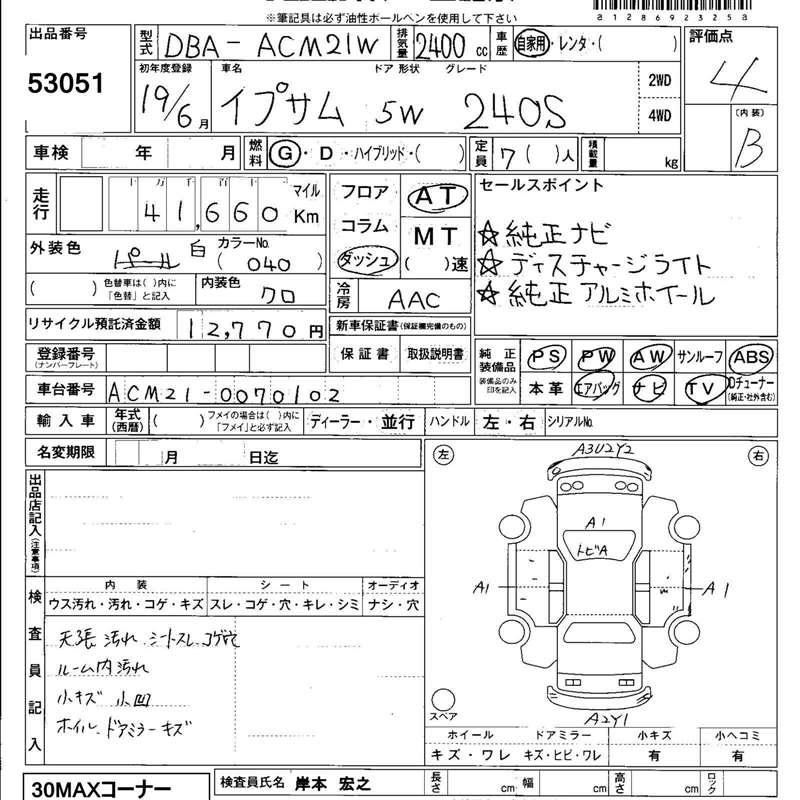 ※筆記具は必ず油性ボールペンを使用して下さい
a128692325a
出品番号
53051
型式 DBA-ACM21W 排気量 2400 cc 車歴 自家用・レンタ・( )
評価点
4
〔内装〕
B
初年度登録 19/6月
車名 イプサム
ドア 形状 5W
グレード 240S
2WD
4WD
車検 年 月 燃料 G・D・ハイブリッド・( ) 定員 7( )人 積載量 kg
走行 十万千百十 41,660 マイル Km
フロア
コラム
ダッシュ
AT
MT
( )速
セールスポイント
☆純正ナビ
☆ディスチャージライト
☆純正アルミホイール
外装色 パール 白 カラーNo. (040)
( ) 色替車は( )内に「色替」と記入
内装色 クロ
冷房 AAC
リサイクル預託済金額 12,770円
新車保証書(保証欄完備のもの)
保証書 取扱説明書
純正装備品 装備品のみ印を記入
PS PW AW サンルーフ ABS
本革 エアバッグ ナビ TV Dチューナー(純正・社外含む)
登録番号(ナンバープレート)
車台番号 ACM21-0070102
輸入車 年式(西暦) ( ) フメイの場合は( )内に「フメイ」と必ず記入 ディーラー・並行 ハンドル 左・右 シリアルNo.
名変期限 月 日迄
出品店記入(注意事項)
左
右
A3U2Y2
A1
トビA
A1
A1
A2Y1
スペア
検査員記入
内装 シート オーディオ
ウス汚れ・汚れ・コゲ・キズ スレ・コゲ・穴・キレ・シミ ナシ・穴
天張汚れ シートスレ コゲ穴
ルーム内汚れ
小キズ 小凹
ホイル、ドアミラーキズ
ホイール ドアミラー 小キズ 小ヘコミ
キズ・ワレ キズ・ヒビ・ワレ 有 有
30MAXコーナー
検査員氏名 岸本 宏之
長さ cm 幅 cm 高さ cm ロック